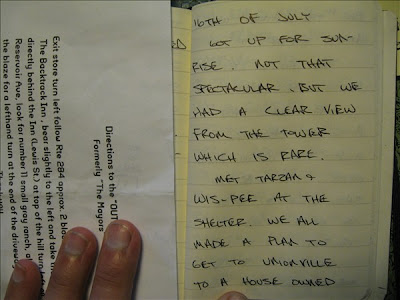 Directions to the "OUT
Formerly "The Mayors
Exit store turn left follow Rte 284 approx. 2
The Backtrack Inn , bear slightly to the left and take
directly behind the Inn (Lewis St.) at top of the hill turn left
Reservoir Ave. look for number 11 small gray ranch,
the blaze for a lefthand turn at the end of the driveway
16TH OF JULY
GOT UP FOR SUN-
RISE. NOT THAT
SPECTACULAR, BUT WE
HAD A CLEAR VIEW
FROM THE TOWER
WHICH IS RARE.
MET TARZAN &
WIS-PER AT THE
SHELTER. WE ALL
MADE A PLAN TO
GET TO UNIONVILLE
TO A HOUSE OWNED